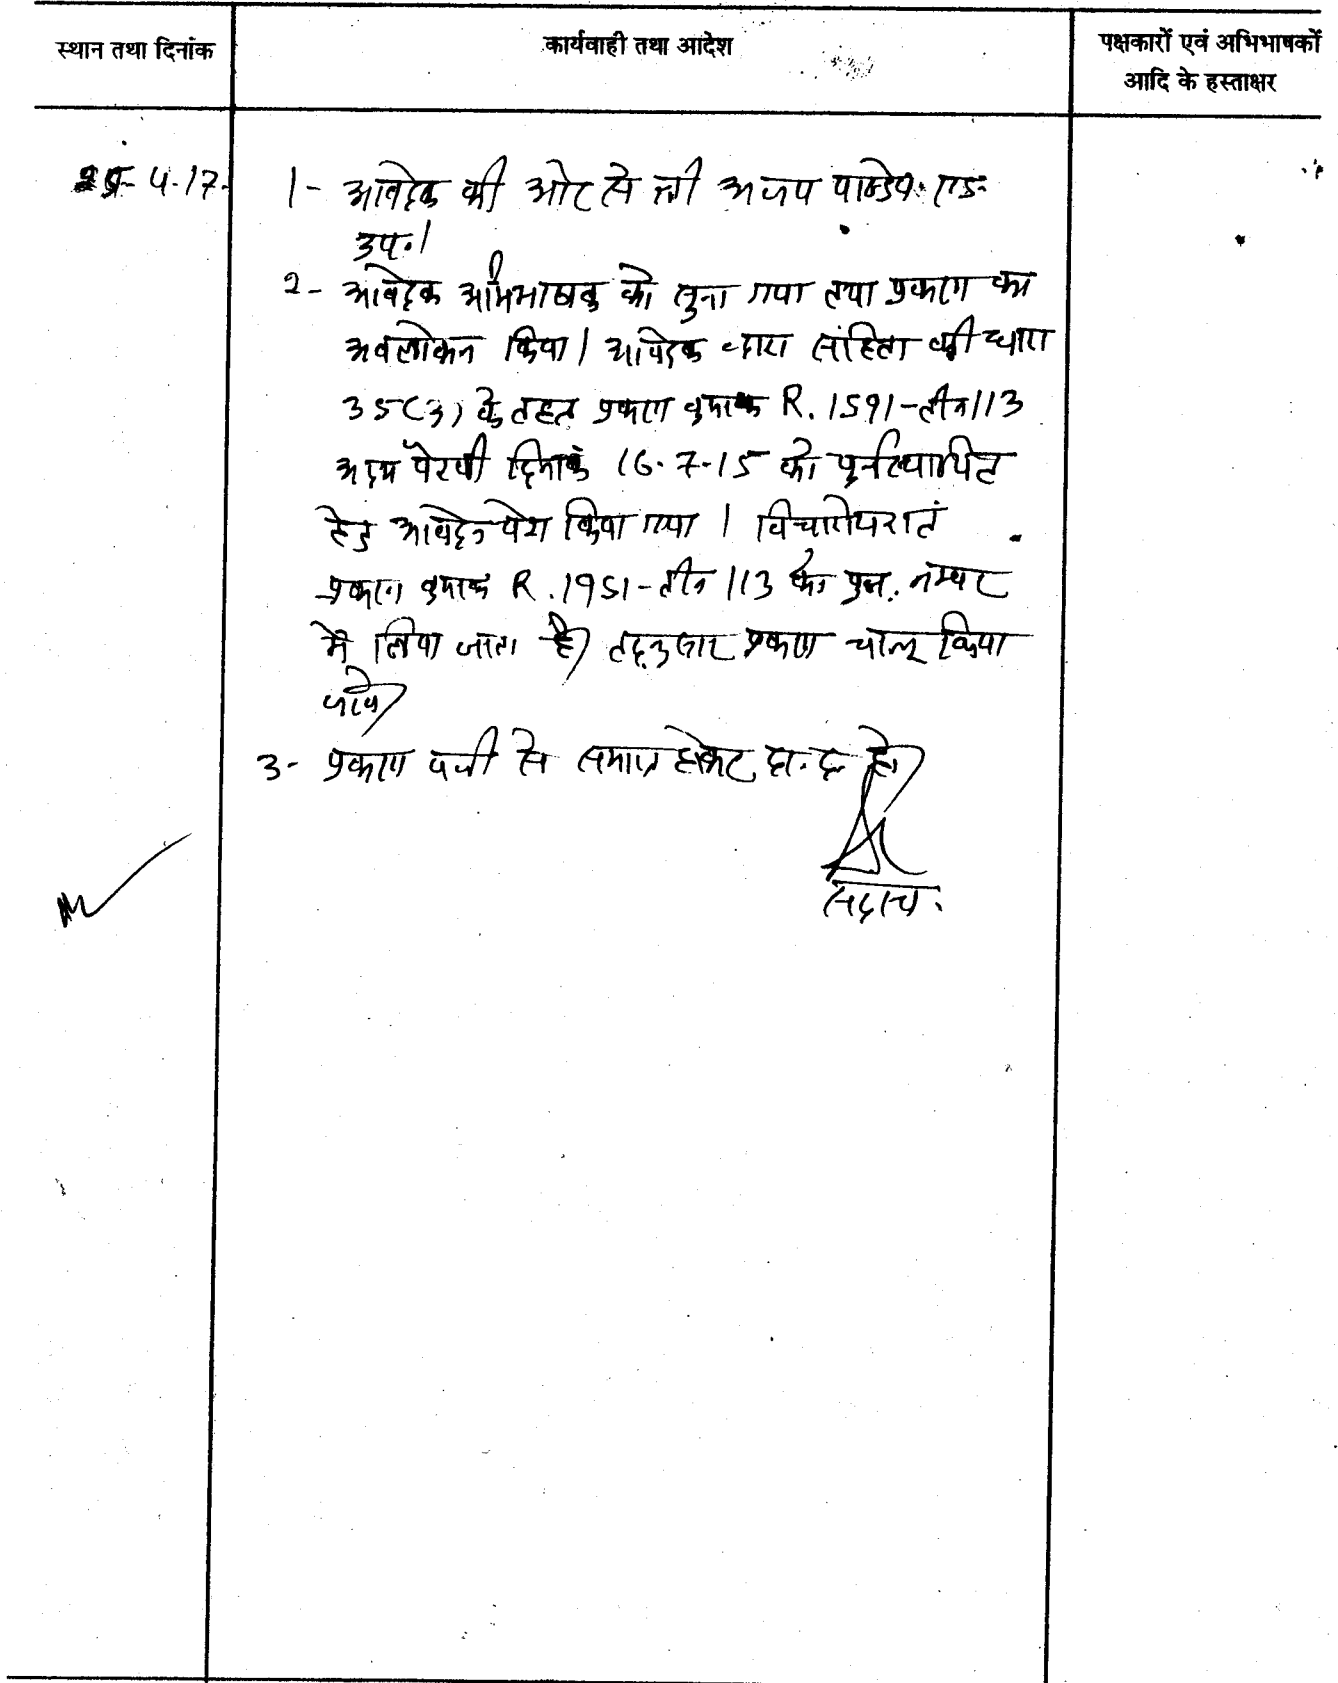 स्थान तथा दिनांक
कार्यवाही तथा आदेश
पक्षकारों एवं अभिभाषकों
आदि के हस्ताक्षर
4-17-
1- आवेदक की ओर से श्री अजय पाण्डेय एड.
उप.।
2- आवेदक अभिभाषक को सुना गया तथा प्रकरण का
अवलोकन किया। आवेदक द्वारा संहिता की धारा
35(3) के तहत प्रकरण क्रमांक R. 1591-तीन/13
अदम पैरवी दिनांक 16-7-15 को पुर्नस्थापित
हेतु आवेदन पेश किया गया। विचारोपरांत
प्रकरण क्रमांक R. 1951-तीन/13 को पुन. नम्बर
में लिया जाता है। तद्नुसार प्रकरण चालू किया
जावे।
3- प्रकरण पंजी से समाप्त होकर दा.द. हो।
सदस्य.